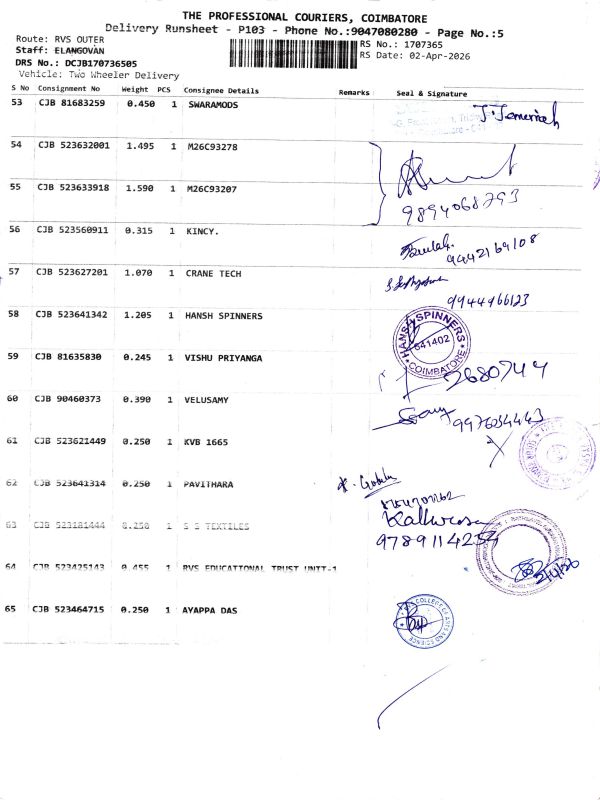 THE PROFESSIONAL COURIERS, COIMBATORE
Delivery Runsheet - P103 - Phone No.:9047080280 - Page No.:5
Route: RVS OUTER
RS No.: 1707365
Staff: ELANGOVAN
RS Date: 02-Apr-2026
DRS No.: DCJB170736505
Vehicle: Two Wheeler Delivery
S No Consignment No Weight PCS Consignee Details Remarks Seal & Signature
53 CJB 81683259 0.450 1 SWARAMODS
54 CJB 523632001 1.495 1 M26C93278
55 CJB 523633918 1.590 1 M26C93207
9894068793
56 CJB 523560911 0.315 1 KINCY.
9442169108
57 CJB 523627201 1.070 1 CRANE TECH
9944966123
58 CJB 523641342 1.205 1 HANSH SPINNERS
HANSH SPINNERS
641402
COIMBATORE
59 CJB 81635830 0.245 1 VISHU PRIYANGA
2680744
60 CJB 90460373 0.390 1 VELUSAMY
9976034443
61 CJB 523621449 0.250 1 KVB 1665
62 CJB 523641314 0.250 1 PAVITHARA
63 CJB 523181444 0.250 1 S S TEXTILES
9789114254
64 CJB 523425143 0.455 1 RVS EDUCATIONAL TRUST UNIT-1
2/4/26
65 CJB 523464715 0.250 1 AYAPPA DAS
COLLEGE OF ARTS AND SCIENCE